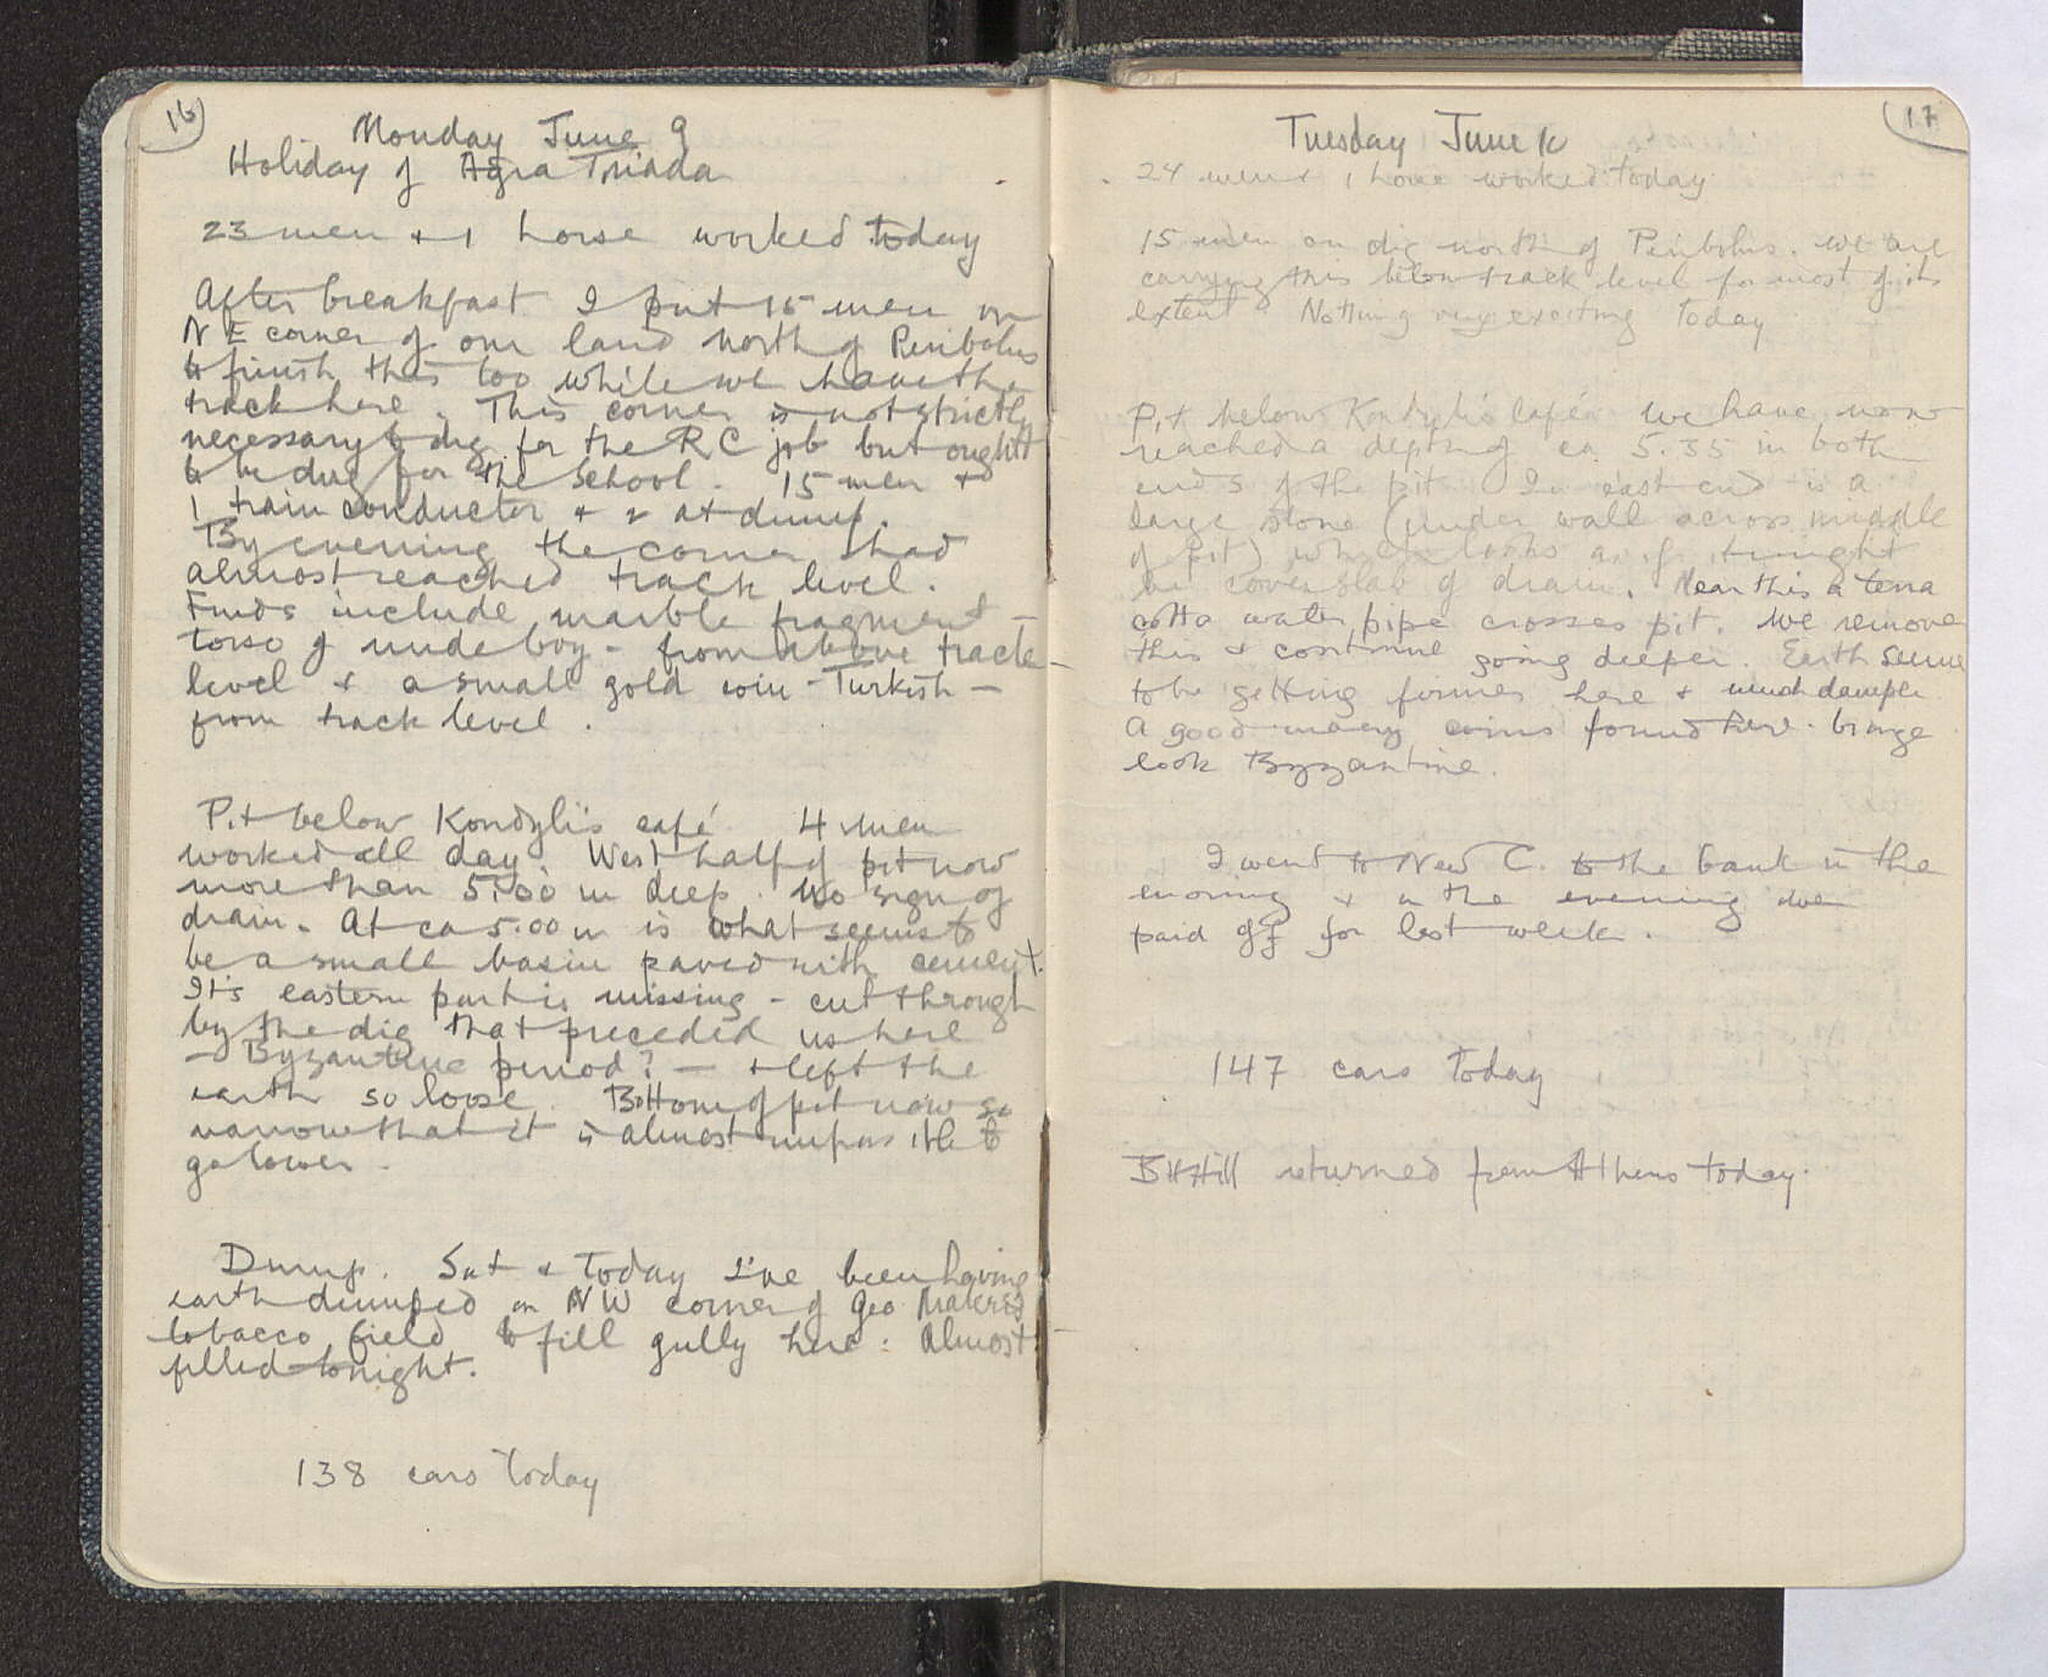 16
Monday June 9
Holiday of Agia Triada
23 men + 1 horse worked today
After breakfast I put 15 men on
NE corner of our land north of Peribolus
to finish this too while we have the
track here. This corner is not strictly
necessary to dig for the RC job but ought
to be dug for the School. 15 men +
1 train conductor + 2 at dump.
By evening the corner had
almost reached track level.
Finds include marble fragment -
torso of nude boy - from above track -
level + a small gold coin - Turkish -
from track level.
Pit below Kondyli's café 4 men
worked all day. West half of pit now
more than 5.00 m deep. No sign of
drain. At ca 5.00 m is what seems to
be a small basin paved with cement.
It's eastern part is missing - cut through
by the dig that preceded us here
- Byzantine period? - + left the
earth so loose. Bottom of pit now so
narrow that it is almost impossible to
go lower.
Dump. Sat + today I've been having
earth dumped on NW corner of Geo
tobacco field to fill gully here. Almost
filled tonight.
138 cars today
17
Tuesday June 10
24 men + 1 horse worked today
15 men on dig north of Peribolus. We are
carrying this below track level for most of its
extent. Nothing very exciting today
Pit below Kondyli's café. We have now
reached a depth of ca 5.35 in both
ends of the pit. In east end is a
large stone (under wall across middle
of pit) which looks as if it might
be cover slab of drain. Near this a terra
cotta water pipe crosses pit. We remove
this + continue going deeper. Earth seems
to be getting firmer here + much damper
A good many coins found here. bronze
look Byzantine.
I went to New C. to the bank in the
morning + in the evening we
paid off for last week.
147 cars today
BHHill returned from Athens today.